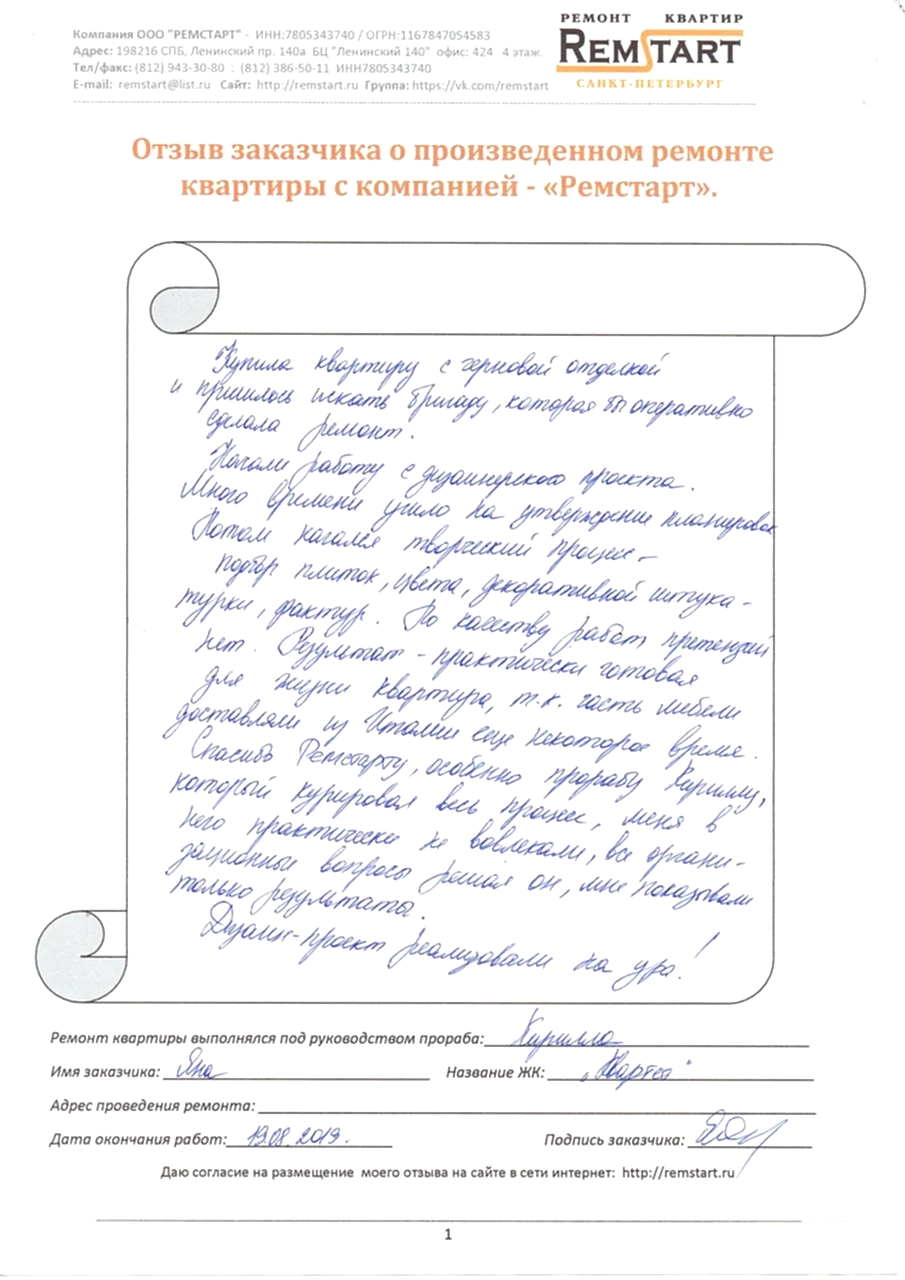 Компания ООО "РЕМСТАРТ" - ИНН:7805343740 / ОГРН:1167847054583
Адрес: 198216 СПБ, Ленинский пр. 140а БЦ "Ленинский 140" офис: 424 4 этаж.
Тел/факс: (812) 943-30-80 : (812) 386-50-11 ИНН7805343740
E-mail: remstart@list.ru Сайт: http://remstart.ru Группа: https://vk.com/remstart
РЕМОНТ КВАРТИР
REMSTART
САНКТ-ПЕТЕРБУРГ
Отзыв заказчика о произведенном ремонте
квартиры с компанией - «Ремстарт».
Купила квартиру с черновой отделкой
и пришлось искать бригаду, которая бы оперативно
сделала ремонт.
Начали работу с дизайнерского проекта.
Много времени ушло на утверждение планировок
Потом начался творческий процесс –
подбор плиток, цвета, декоративной штука-
турки, фактур. По качеству работ претензий
нет. Результат - практически готовая
для жизни квартира, т.к. часть мебели
доставляли из Италии еще некоторое время.
Спасибо Ремстарту, особенно прорабу Кириллу,
который курировал весь процесс, меня в
него практически не вовлекали, все органи-
зационные вопросы решал он, мне показывали
только результаты.
Дизайн-проект реализовали на ура!
Ремонт квартиры выполнялся под руководством прораба: Кирилла
Имя заказчика: Яна Название ЖК: "Квартет"
Адрес проведения ремонта:
Дата окончания работ: 19.08.2019. Подпись заказчика:
Даю согласие на размещение моего отзыва на сайте в сети интернет: http://remstart.ru
1